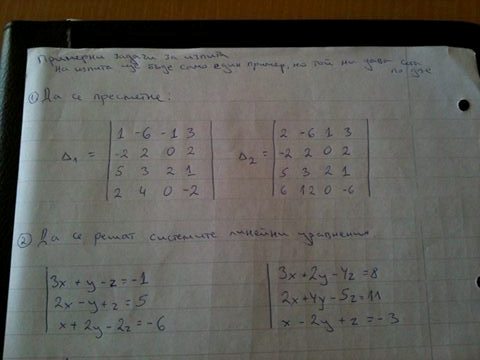 Примерни задачи за изпита
На изпита ще бъде само един пример, но той ни даде
по две
① Да се пресметне:
Δ₁ = | 1 -6 -1 3 | Δ₂ = | 2 -6 1 3 |
| -2 2 0 2 | | -2 2 0 2 |
| 5 3 2 1 | | 5 3 2 1 |
| 2 4 0 -2 | | 6 12 0 -6 |
② Да се решат системите линейни уравнения
| 3x + y - z = -1 | 3x + 2y - 4z = 8
| 2x - y + z = 5 | 2x + 4y - 5z = 11
| x + 2y - 2z = -6 | x - 2y + z = -3